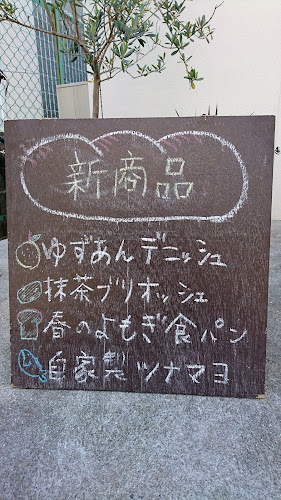 新商品
ゆずあんデニッシュ
抹茶ブリオッシュ
春のよもぎ食パン
自家製ツナマヨ